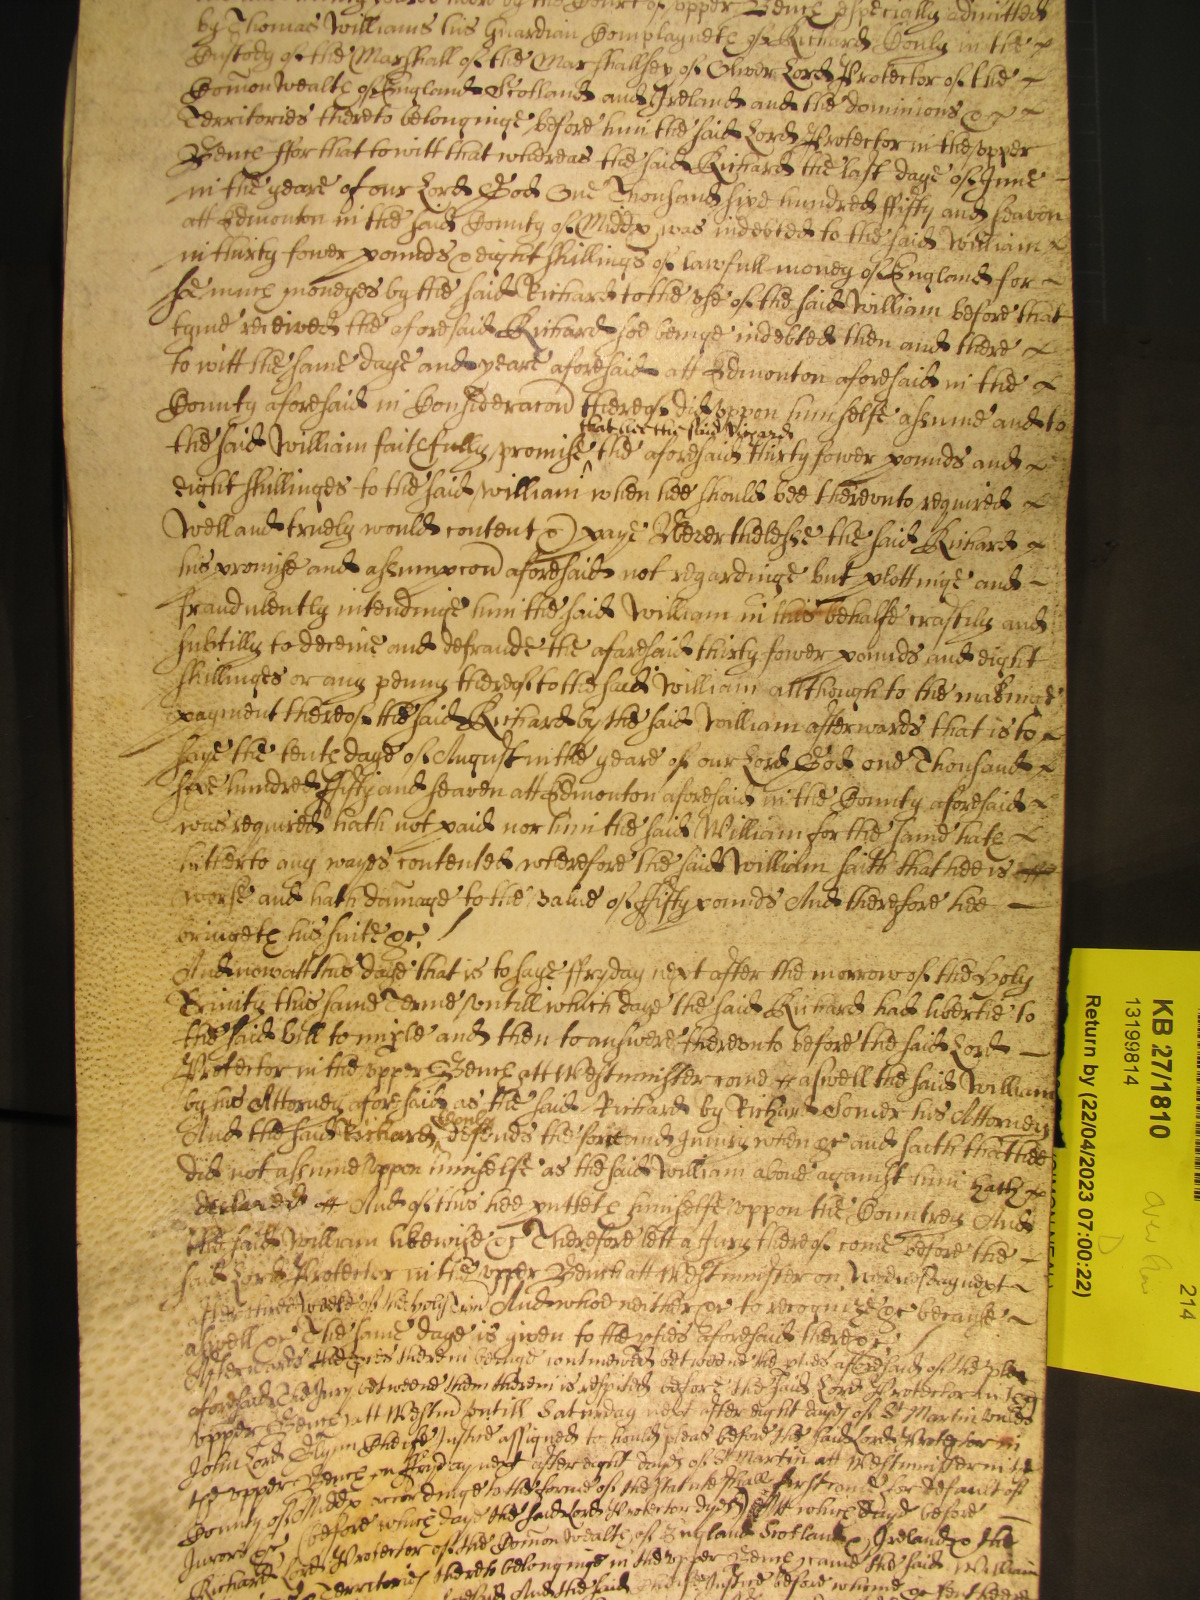 by the Court of upper Bench especially admitted
by Thomas Williams his Guardian Complayneth of Richard Conly in the
Custody of the Marshall of the Marshallsey of Oliver Lord Protector of the
Comon Wealth of England Scotland and Ireland and the dominions &
Territories thereto belonginge before him the said Lord Protector in the upper
Bench ffor that to witt that whereas the said Richard the last daye of June
in the yeare of our Lord God One Thousand sixe hundred ffifty and seaven
att Edmonton in the said County of Middx was indebted to the said William
in thirty fower pounds & eight shillings of lawfull money of England for
soe much moneyes by the said Richard to the use of the said William before that
tyme received the aforesaid Richard soe beinge indebted then and there
to witt the same daye and yeare aforesaid att Edmonton aforesaid in the
County aforesaid in Consideracon thereof did uppon himselfe assume and to
that hee the said Richard
the said William faithfully promise ^ the aforesaid thirty fower pounds and
eight shillinges to the said William when hee should bee thereunto required
Well and truely would content & paye Neverthelesse the said Richard
his promise and assumpcon aforesaid not regardinge but plottinge and
fraudulently intendinge him the said William in this behalfe craftily and
subtilly to deceive and defraude the aforesaid thirty fower pounds and eight
shillinges or any penny thereof to the said William allthough to the makinge
payment thereof the said Richard by the said William afterwards that is to
saye the tenth daye of August in the yeare of our Lord God one Thousand
sixe hundred ffifty and seaven att Edmonton aforesaid in the County aforesaid
was required hath not paid nor him the said William for the same hath
hitherto any wayes contented wherefore the said William saith that hee is
worse and hath damage to the value of ffifty pounds And therefore hee
bringeth his suite &c
And now att this daye that is to saye ffryday next after the morrow of the Holy
Trinity this same Terme untill which daye the said Richard had libertie to
the said bill to imparle and then to answere thereunto before the said Lord
Protector in the upper Bench att Westminster come aswell the said William
by his Attorney aforesaid as the said Richard by Richard Comer his Attorney
Conly
And the said Richard ^ defends the force and Iniury when &c and saith that hee
did not assume uppon himselfe as the said William above against him hath
declared And of this hee putteth himselfe uppon the Countrey And
the said William likewise &c Therefore lett a Jury thereof come before the
said Lord Protector in the upper Bench att Westminster on Wednesday next
after three weekes of the holy And whoe neither &c to recognize &c because
aswell &c The same daye is given to the pties aforesaid there &c
Afterwards the pces therein beinge continewed betweene the pties aforesaid of the plea
aforesaid the Jury betweene them therein is respited before the said Lord Protector in the
upper Bench att Westm untill Saturday next after eight dayes of St Martin unles
John Lord Glynn Cheife Justice assigned to hould pleas before the said Lord Protector in
the upper Bench on ffryday next after eight dayes of St Martin att Westminster in the
County of Middx accordinge to the forme of the statute shall first come for default of
Jurors &c before which daye the said Lord Protector dyed Att which daye before
Richard Lord Protector of the Comon Wealth of England Scotland & Ireland & the
Territories thereto belonginge in the upper Bench came the said William
And the said Cheife Justice before whome &c sent here
KB 27/1810
13199814
Return by (22/04/2023 07:00:22)
214
D